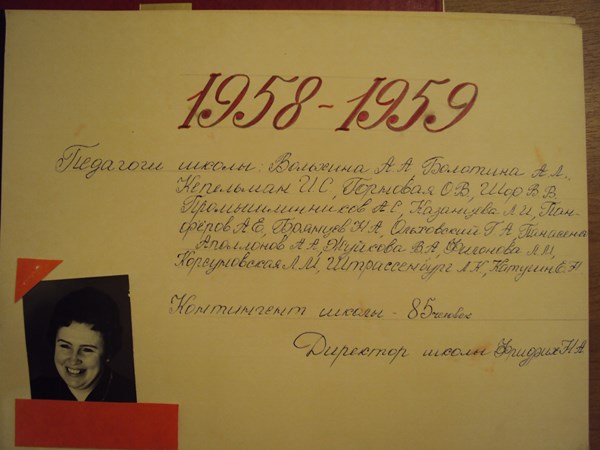 1958-1959
Педагоги школы: Волькина А А Болотина А А.,
Кепельман И С, Гортовая О В, Шор В В,
Промышлинников А С, Казанцева Л И, Пан-
феров А Е, Брянцев Н А, Ольховский Г А
Аполлонов А А, Жуйкова В А, Филонова Л М,
Корсуновская Л М, Штрассенбург А К,
Контингент школы - 85 человек
Директор школы Фридрих Н А